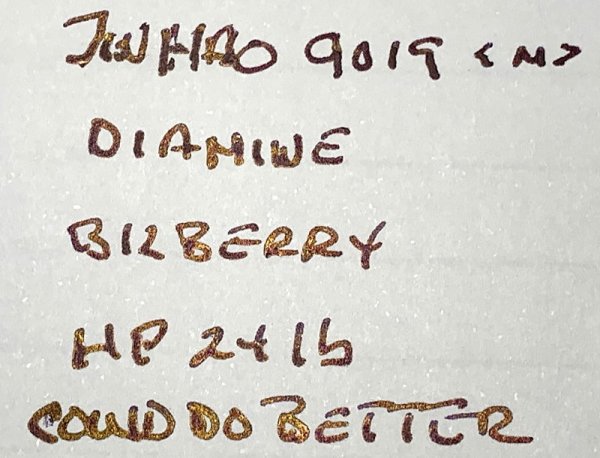 JINHAO 9019 <M>
DIAMINE
BILBERRY
HP 24 lb
COULD DO BETTER